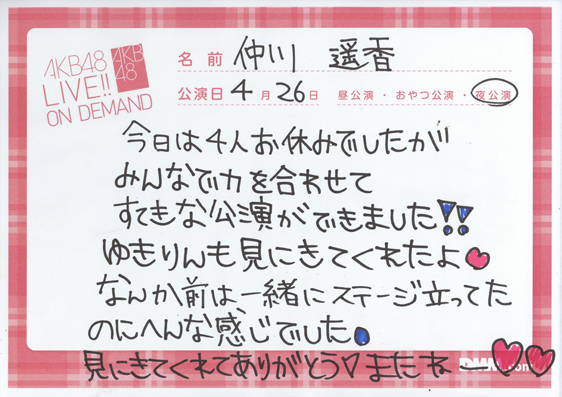 AKB48
LIVE!!
ON DEMAND
AKB
48
名前 仲川 遥香
公演日 4月26日 昼公演・おやつ公演・夜公演
今日は4人お休みでしたが
みんなで力を合わせて
すてきな公演ができました!!
ゆきりんも見にきてくれたよ♥
なんか前は一緒にステージ立ってた
のにへんな感じでした。
見にきてくれてありがとう♡またねー♥♥
DMM.com